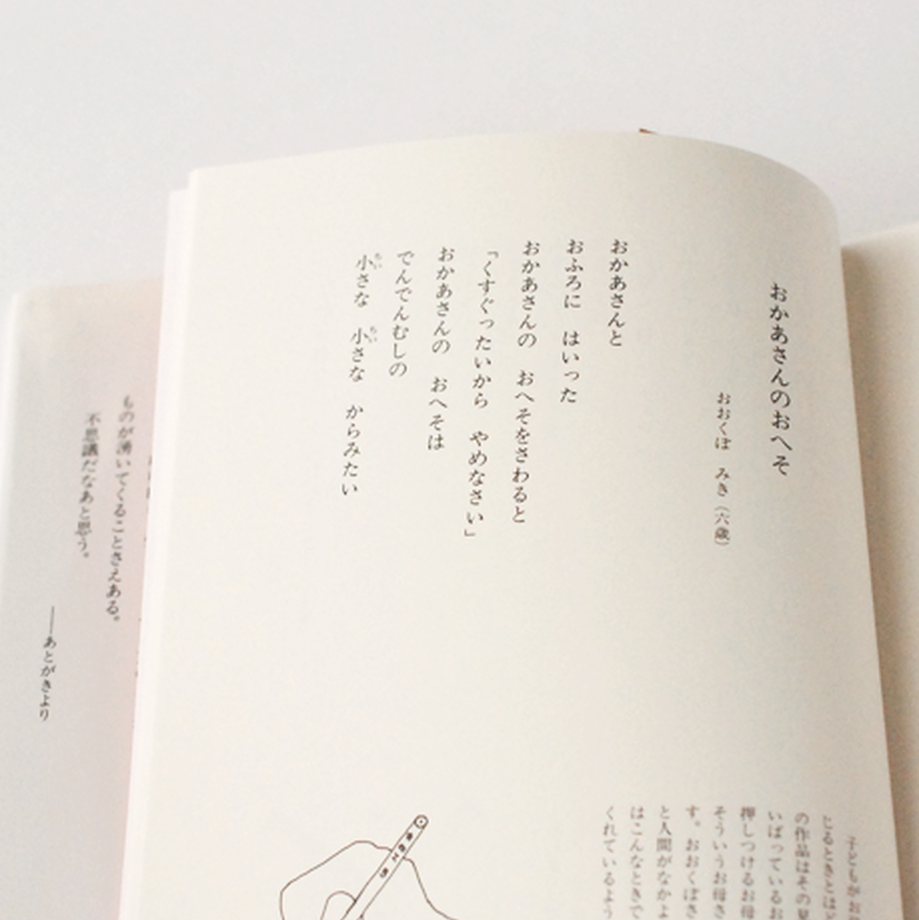 おかあさんのおへそ
おおくぼ　みき（六歳）
おかあさんと
おふろに　はいった
おかあさんの　おへそをさわると
「くすぐったいから　やめなさい」
おかあさんの　おへそは
でんでんむしの
小さな　小さな　からみたい
子どもがお
じるときとは
の作品はその
いばっているお
押しつけるお母
そういうお母さ
す。おおくぼさ
と人間がなかよ
はこんなときで
くれているよう
ものが湧いてくることさえある。
不思議だなあと思う。
――あとがきより